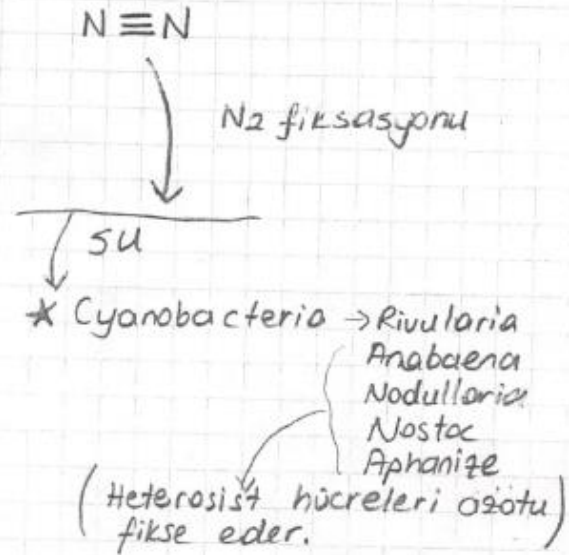 N≡N
N2 fiksasyonu
SU
* Cyanobacteria → Rivularia
Anabaena
Nodullaria
Nostoc
Aphanize
(Heterosist hücreleri azotu
fikse eder.)